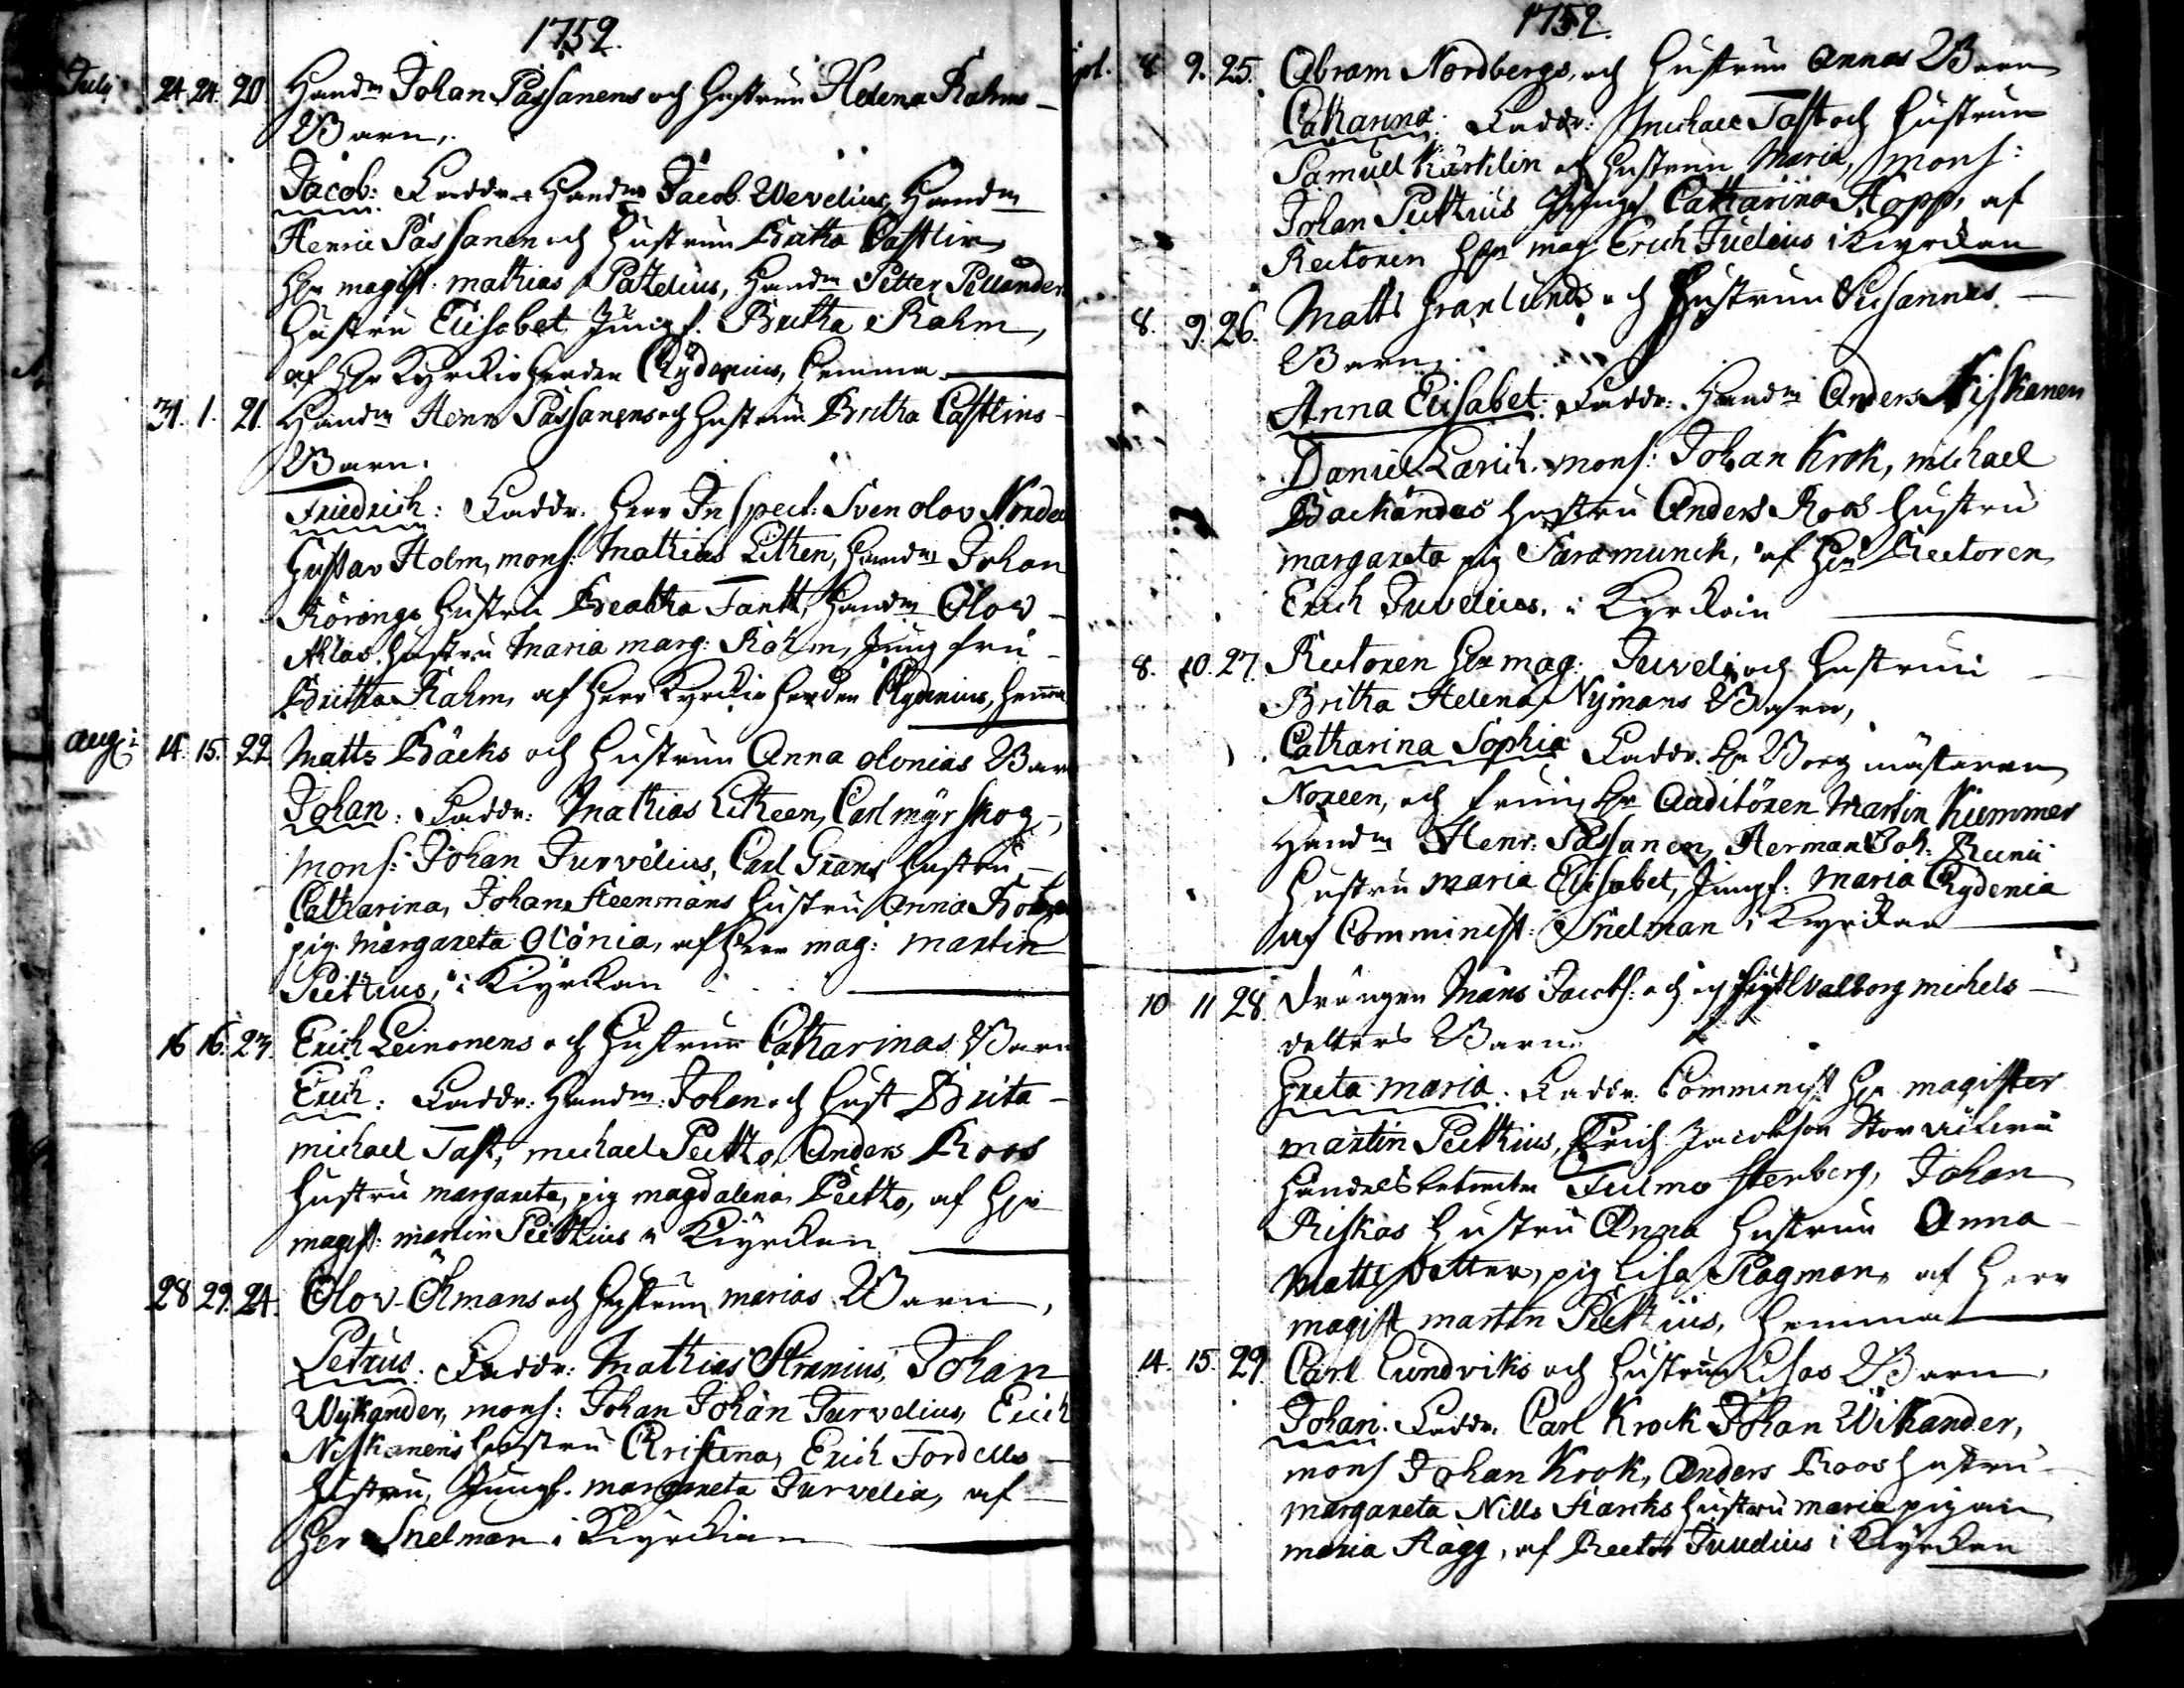 1752.
July 24. 24. 20. Handm Johan Passanens och Hustrun Helena Rahms
Barn,
Jacob: Faddr. Handm Jacob Wevelius, Handm
Henric Passanen och Hustrun Britha Castlin
Hr magist. mathias Pazelius, Handm Petter Pellander
Hustru Elisabet Jungf. Britha Rahm,
af Hr Kyrckioherden Chydenius, hemma.
31. 1. 21. Handm Henr. Passanens och Hustrun Britha Castlins
Barn.
Friedrich: Faddr. Herr Inspect: Sven olov
Gustav Holm, mons: Mathias Litheen, Handm Johan
Hustru Beatha Fantt, Handm Olov
Ahlas Hustru Maria marg: Rahm, Jungfru
Britha Rahm, af Herr Kyrckioherden Chydenius, hemma
aug: 14. 15. 22. Matts Bäcks och Hustrun Anna olonias Barn
Johan: Faddr: Mathias Litheen, Carl myrskog,
mons: Johan Jurvelius, Carl Grans Hustru
Catharina, Johan Steenmans Hustru Anna
pig. Margareta Olonia, af Herr mag: martin
Peitzius, i Kiyrckan
16 16. 23. Erich Leinonens och Hustrun Catharinas Barn
Erich: Faddr: Handm: Johan och Hust Brita
michael Fast, michael Peitzo, Anders Roos
Hustru margareta, pig magdalena Peitzo, af Hr
magist: martin Peitzius i Kiyrckan
28 29. 24. Olov Öhmans och Hustrun marias Barn,
Petrus: Faddr: Mathias Johan
Wijkander, mons: Johan Johan Jurvelius, Erich
Niskanens Hustru Christina, Erich Fordells
Hustru, Jungf. margareta Jurvelia, af
Her Snelman i Kiyrckian
1752.
8. 9. 25. Abram Nordbergs, och Hustrun Annas Barn
Catharina: Faddr: Michael Fast och Hustrun
Samuel Kärklin och Hustrun Maria, Mons:
Johan Peitzius Jungf Catharina Kopp, af
Rectoren Hr mag Erich Juvelius i Kiyrckan
8. 9. 26. Matts Granlunds och Hustrun Susannas
Barn,
Anna Elisabet: Faddr: Handm Anders Niskanen
Daniel mons: Johan Krok, michael
Hustru Anders Roos Hustru
margareta pig Sara munck, af Her Rectoren
Erich Juvelius, i Kyrckian
8. 10. 27. Rectoren Her mag: Juveli och Hustrun
Britha Helena Nymans Barn,
Catharina Sophia Faddr. Hr Borgmästaren
Noreen, och fruen, Hr Auditören Martin
Handm Henr: Passanen, Herman Joh:
Hustru maria Elisabet, Jungf: Maria Chydenia
af Comminist: Snelman i Kyrckan
10 11 28. Drängen Måns Jacobs: och Valborg michels
dotters Barn
Greta Maria: Faddr. Comminist Hr magister
martin Peitzius, Erich Jacobson
Handelsbetiente Sterberg, Johan
Riskas Hustru Anna Hustrun Anna
Matts dotter, pig Lisa Hagman, af Herr
magist martin Peitzius, hemma
14. 15. 29. Carl Lundviks och Hustrun Lisas Barn,
Johan: Faddr. Carl Krock Johan Wikander,
mons Johan Krok, Anders Roos Hustru
margareta Nills Starcks Hustru maria pigan
maria Hägg, af Rector Juvelius i Kiyrckan